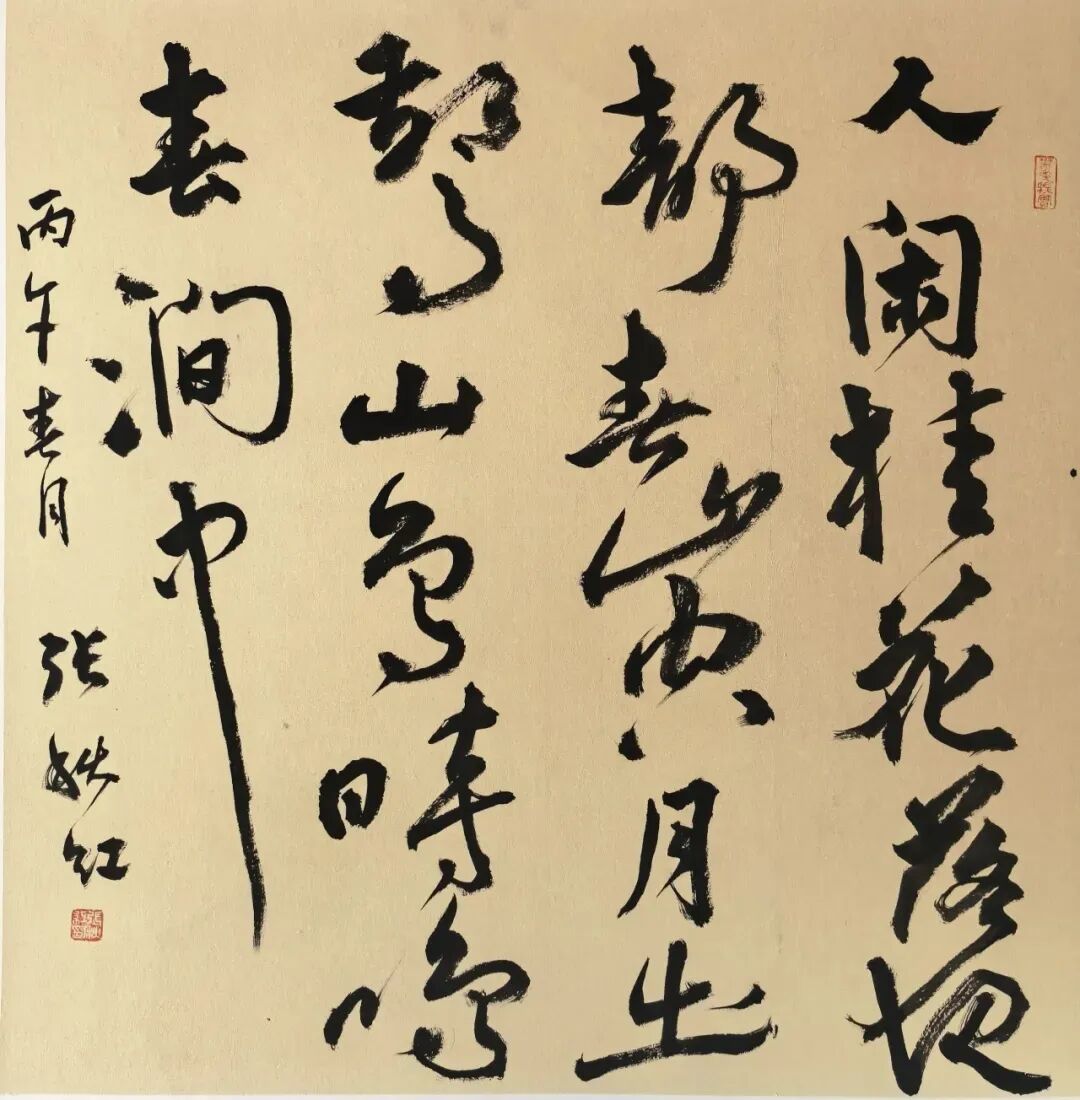 人闲桂花落夜
静春山空月出
驚山鳥時鳴
春涧中
丙午春月 张姝红